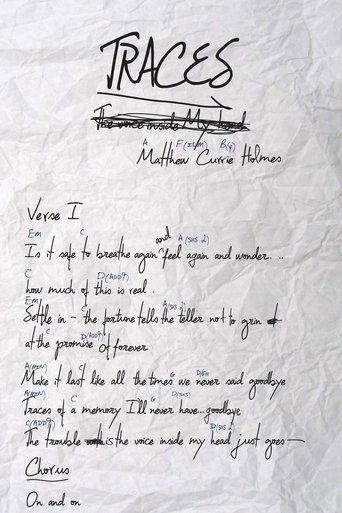 TRACES
The voice inside My head
A F(#11/M) B(4)
Matthew Currie Holmes
Verse I
Em C A(sus 2)
Is it safe to breathe again and feel again and wonder...
C D(ADD9)
how much of this is real.
Em A(sus 2)
Settle in - the fortune tells the teller not to grin
C D(ADD9)
at the promise of forever
A(MIN) C G D/F#
Make it last like all the times we never said goodbye
A(MIN) C G D(SUS)
Traces of a memory I'll never have... goodbye
C(ADD9) D(SUS 2)
The trouble is the voice inside my head just goes—
Chorus
On and on